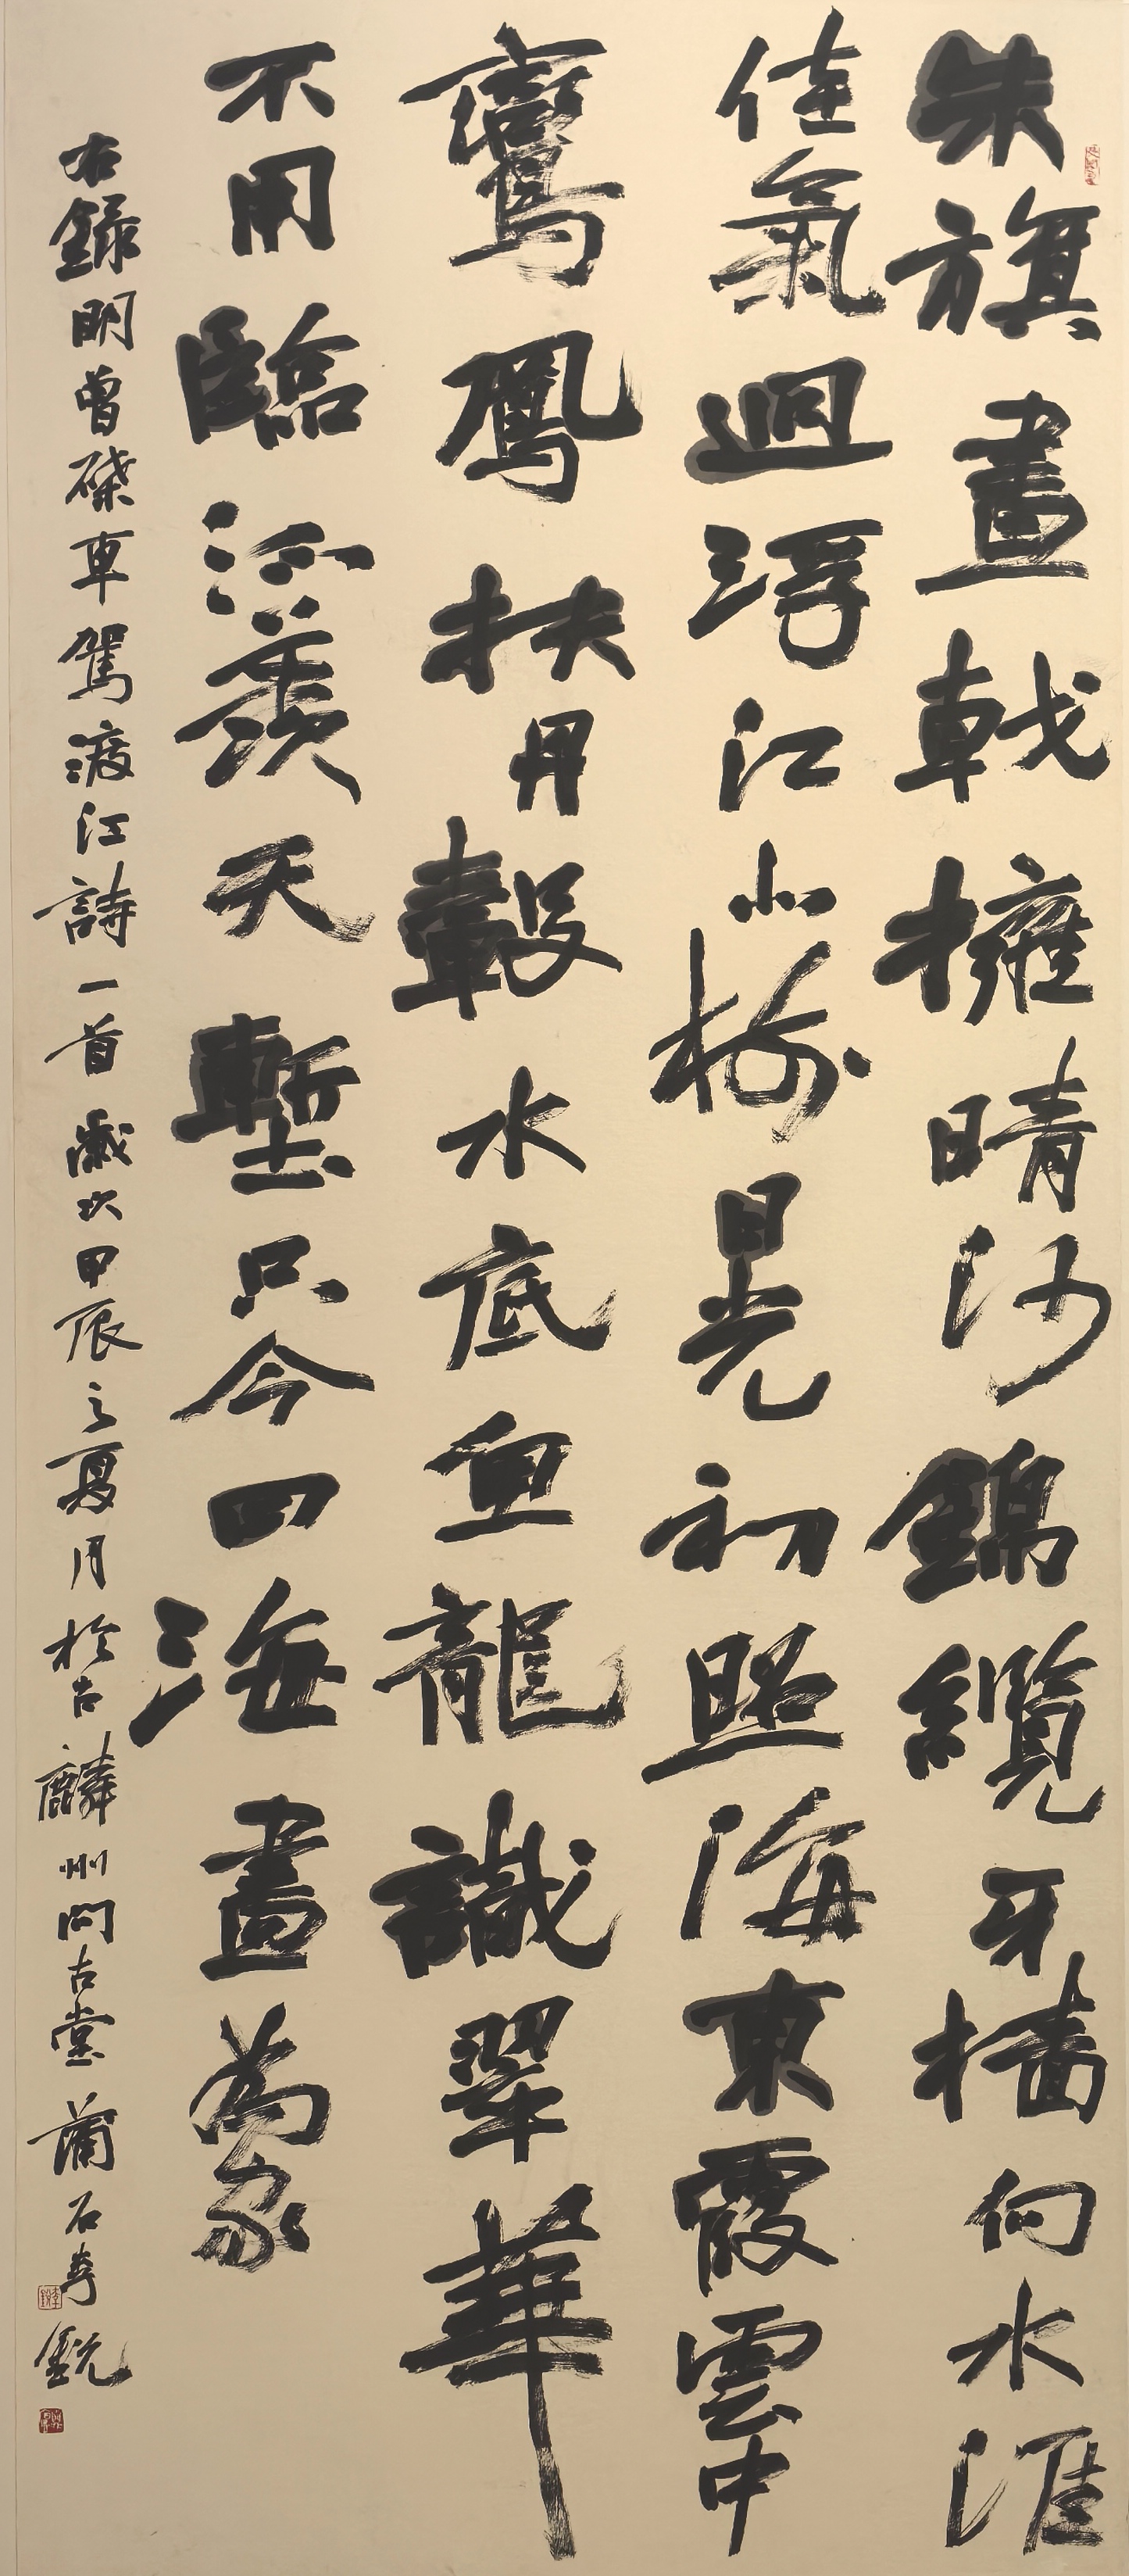 朱旗畫戟擁晴沙錦纜牙檣向水涯
佳氣逈浮江北樹日光初照海東霞雲中
鸞鳳扶丹轂水底魚龍識翠華
不用臨流羨天塹只今四海盡為家
右錄明曾棨車駕渡江詩一首歲次甲辰之夏月於古麟州問古堂蒲石李銳